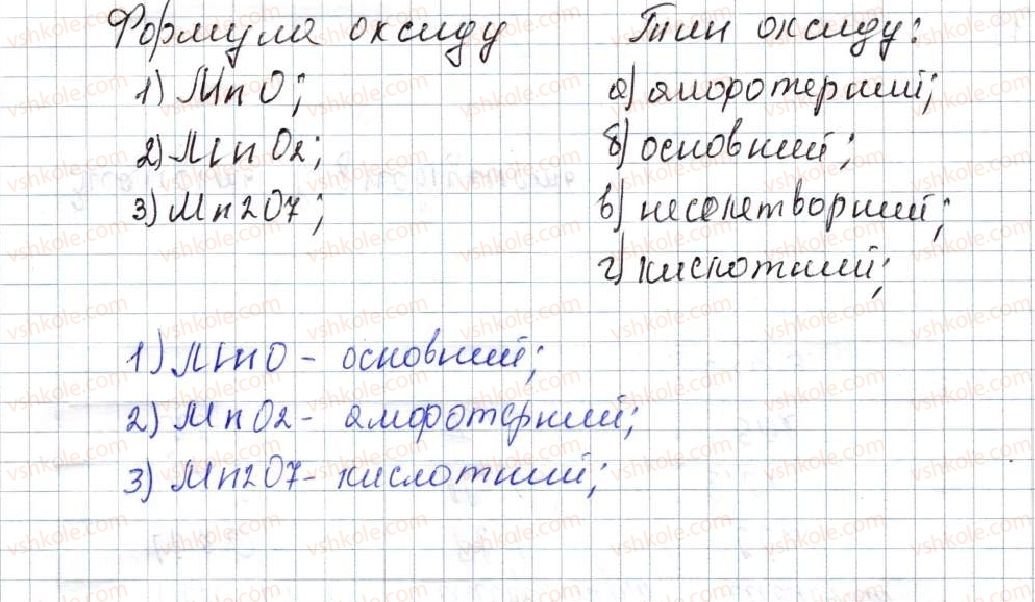 Формула оксиду Тип оксиду:
1) MnO; а) амфотерний;
2) MnO2; б) основний;
3) Mn2O7; в) несолетворний;
г) кислотний;
1) MnO - основний;
2) MnO2 - амфотерний;
3) Mn2O7 - кислотний;
vshkole.com